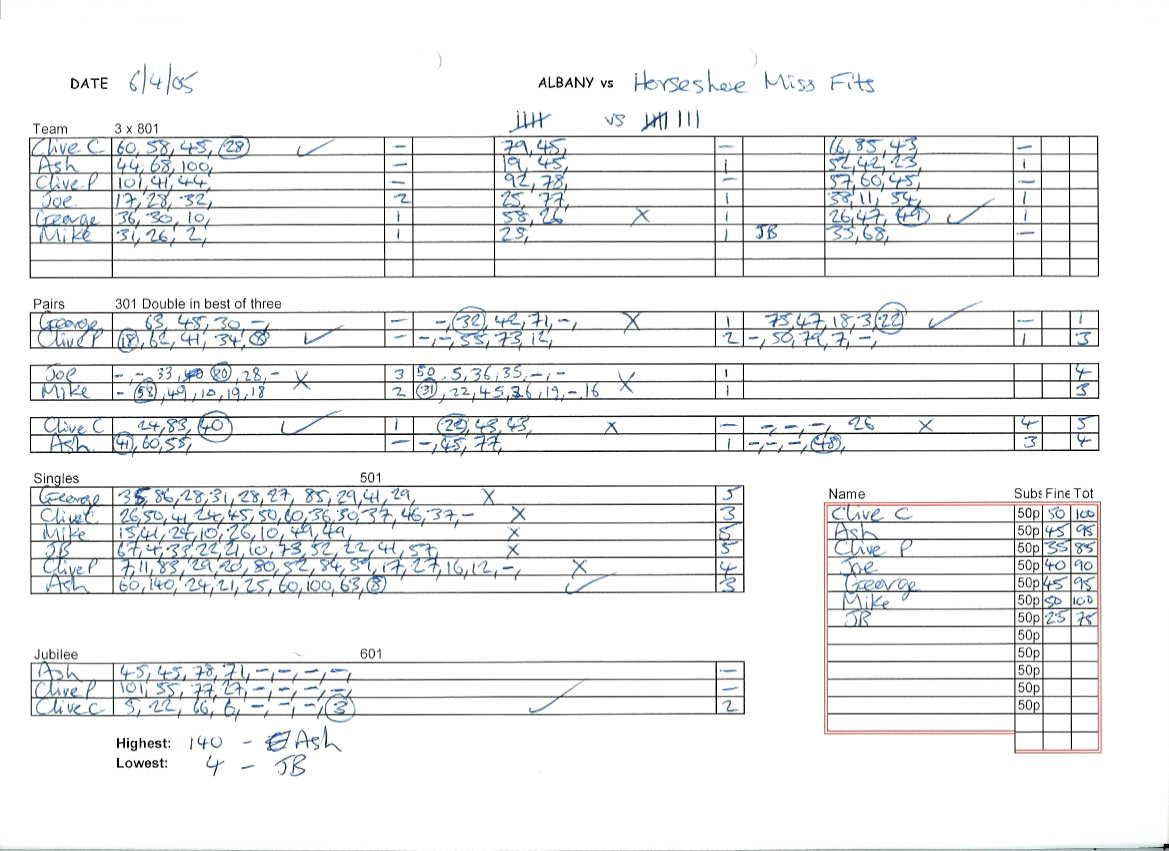 DATE 6/4/05 ALBANY vs Horseshoe Miss Fits
vs
Team 3 x 801
Clive C 60, 58, 45, 28 ✓ — 79, 45, — 66, 85, 43 —
Ash 44, 68, 100, — 19, 45, 1 52, 42, 23, 1
Clive P 101, 41, 44, — 92, 78, — 57, 60, 45, —
Joe 17, 28, 32, 2 25, 77, 1 58, 11, 54, 1
George 36, 30, 10, 1 58, 26 X 1 26, 47, 49 ✓ 1
Mike 31, 26, 2, 1 25, 1 JB 35, 68, —
Pairs 301 Double in best of three
George 63, 45, 30, -, — -, 32, 42, 71, -, X 1 75, 47, 18, 3, 22 ✓ — 1
Clive P 18, 62, 41, 34, 8 ✓ — -, -, 55, 73, 12, 2 -, 50, 79, 7, -, 1 3
Joe -, -, 33, 20, 28, - X 3 50, 5, 36, 35, -, - X 1 4
Mike - 58, 49, 10, 19, 18 2 31, 22, 45, 26, 19, -, 16 1 3
Clive C 24, 83, 40 ✓ 1 20, 43, 43, X — -, -, -, 26 X 4 5
Ash. 41, 60, 55, — -, 45, 77, 1 -, -, -, 48, 3 4
Singles 501
George 35, 86, 28, 31, 28, 27, 85, 29, 41, 29, X 5
Clive C 26, 50, 41, 24, 45, 50, 60, 36, 30, 37, 46, 37, - X 3
Mike 15, 41, 24, 10, 26, 10, 49, 49, X 5
JB 67, 4, 33, 22, 21, 10, 73, 52, 22, 41, 57, X 5
Clive P 7, 11, 83, 29, 20, 80, 52, 84, 59, 17, 27, 16, 12, -, X 4
Ash 60, 140, 24, 21, 25, 60, 100, 63, 8 ✓ 3
Name Subs Fine Tot
Clive C 50p 50 100
Ash 50p 45 95
Clive P 50p 35 85
Joe 50p 40 90
George 50p 45 95
Mike 50p 50 100
JB 50p 25 75
50p
50p
50p
50p
50p
Jubilee 601
Ash 45, 45, 78, 71, -, -, -, -, —
Clive P 101, 55, 77, 27, -, -, -, -, —
Clive C 5, 22, 66, 6, -, -, -, 3 ✓ 2
Highest: 140 - Ash
Lowest: 4 - JB